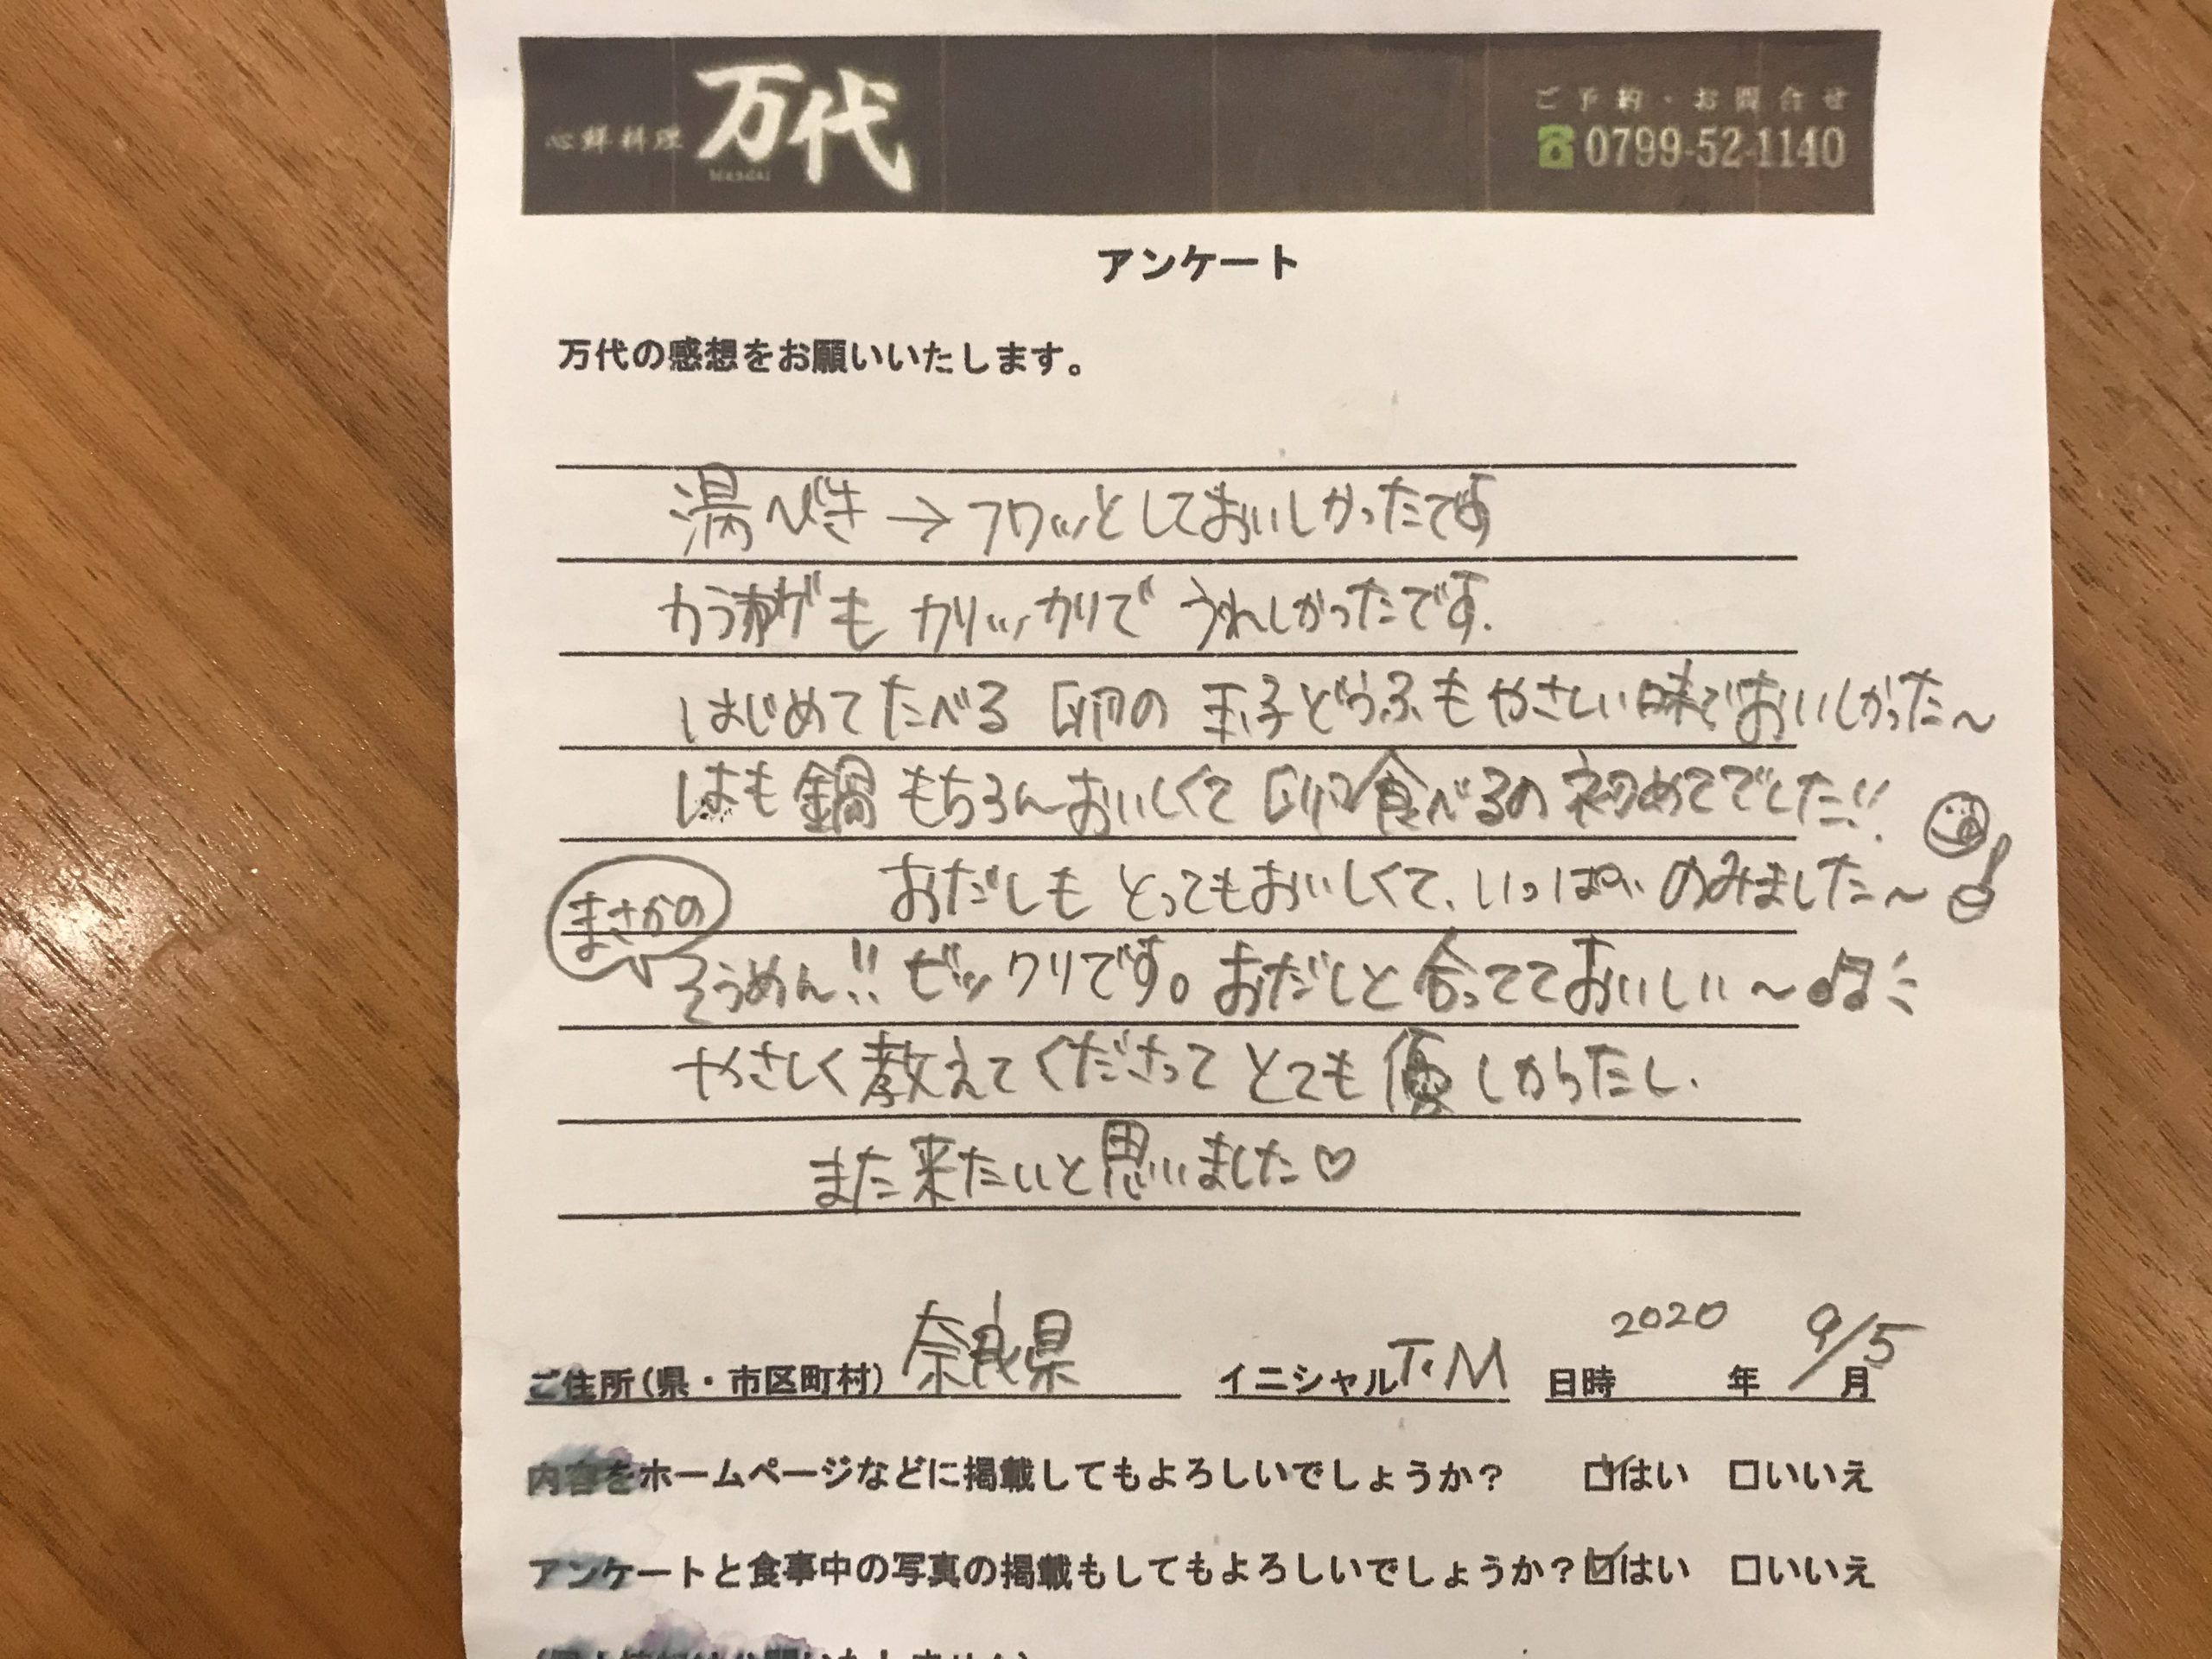 心鮮料理 万代
bandai
ご予約・お問合せ
0799-52-1140
アンケート
万代の感想をお願いいたします。
湯べき→フワッとしておいしかったです
から揚げも カリッカリで うれしかったです.
はじめてたべる 卵の 玉子どうふも やさしい味でおいしかった〜
はも鍋 もちろんおいしくて 卵食べるの 初めてでした!!
おだしも とってもおいしくて、いっぱい のみました〜
まさかの
そうめん!! ビックリです。おだしと 合ってておいしい〜♫
やさしく教えてくださって とても 優しかったし、
また来たいと思いました♡
ご住所(県・市区町村) 奈良県 イニシャル T・M 日時 2020 年 9/5 月
内容をホームページなどに掲載してもよろしいでしょうか? ☑はい □いいえ
アンケートと食事中の写真の掲載もしてもよろしいでしょうか? ☑はい □いいえ